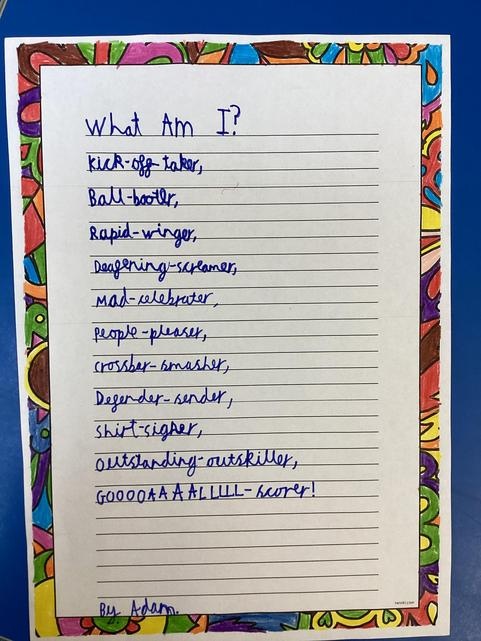 What Am I?
Kick-off-taker,
Ball-booter,
Rapid-winger,
Deafening-screamer,
Mad-celebrater,
People-pleaser,
Crossbar-smasher,
Defender-sender,
Shirt-signer,
Outstanding-outskiller,
GOOOOAAAALLLLL-scorer!
By Adam.